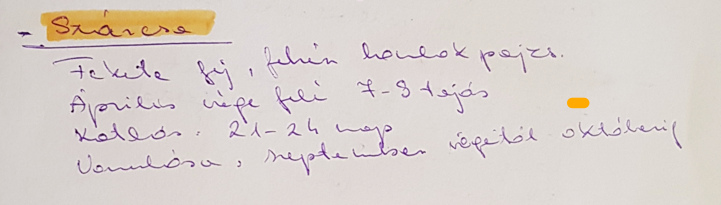 - Szárcsa
Fekete fej, fehér homlok pajzs.
Április vége felé 7-8 tojás
Kotlás. 21-24 nap
Vonulása, szeptember végétől októberig